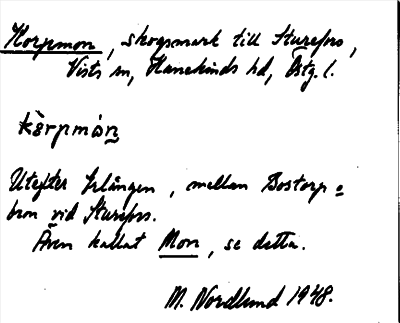 Korpmon, skogsmark till Sturefors,
Vists sn, Hanekinds hd, Östg. l.
kòrpmón
Utefter Erlången, mellan Bostorp=
bron vid Sturefors.
Även kallat Mon, se detta.
M. Nordlund 1948.